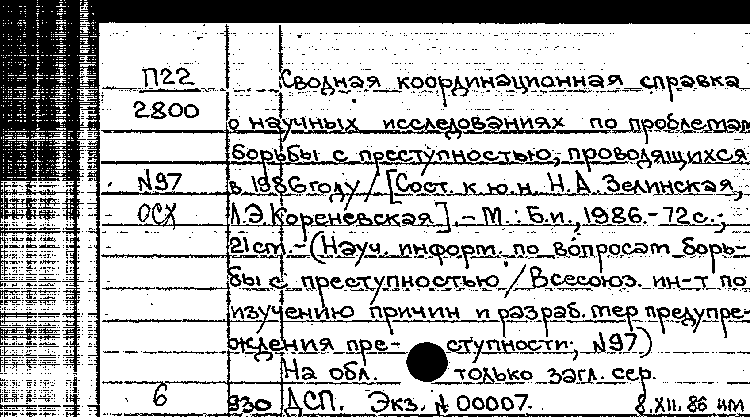 П22 Сводная координационная справка
2800 о научных исследованиях по проблемам
борьбы с преступностью, проводящихся
N97 в 1986 году / [Сост. к.ю.н. Н.А. Зелинская,
ОСХ Л.Э. Кореневская]. – М.: Б.и., 1986. – 72 с.;
21 cm. – (Науч. информ. по вопросам борь-
бы с преступностью / Всесоюз. ин-т по
изучению причин и разраб. мер предупре-
ждения пре- ступности; N97)
На обл. только загл. сер.
6 930 ДСП. Экз. N 00007. 8.XII.86 НМ